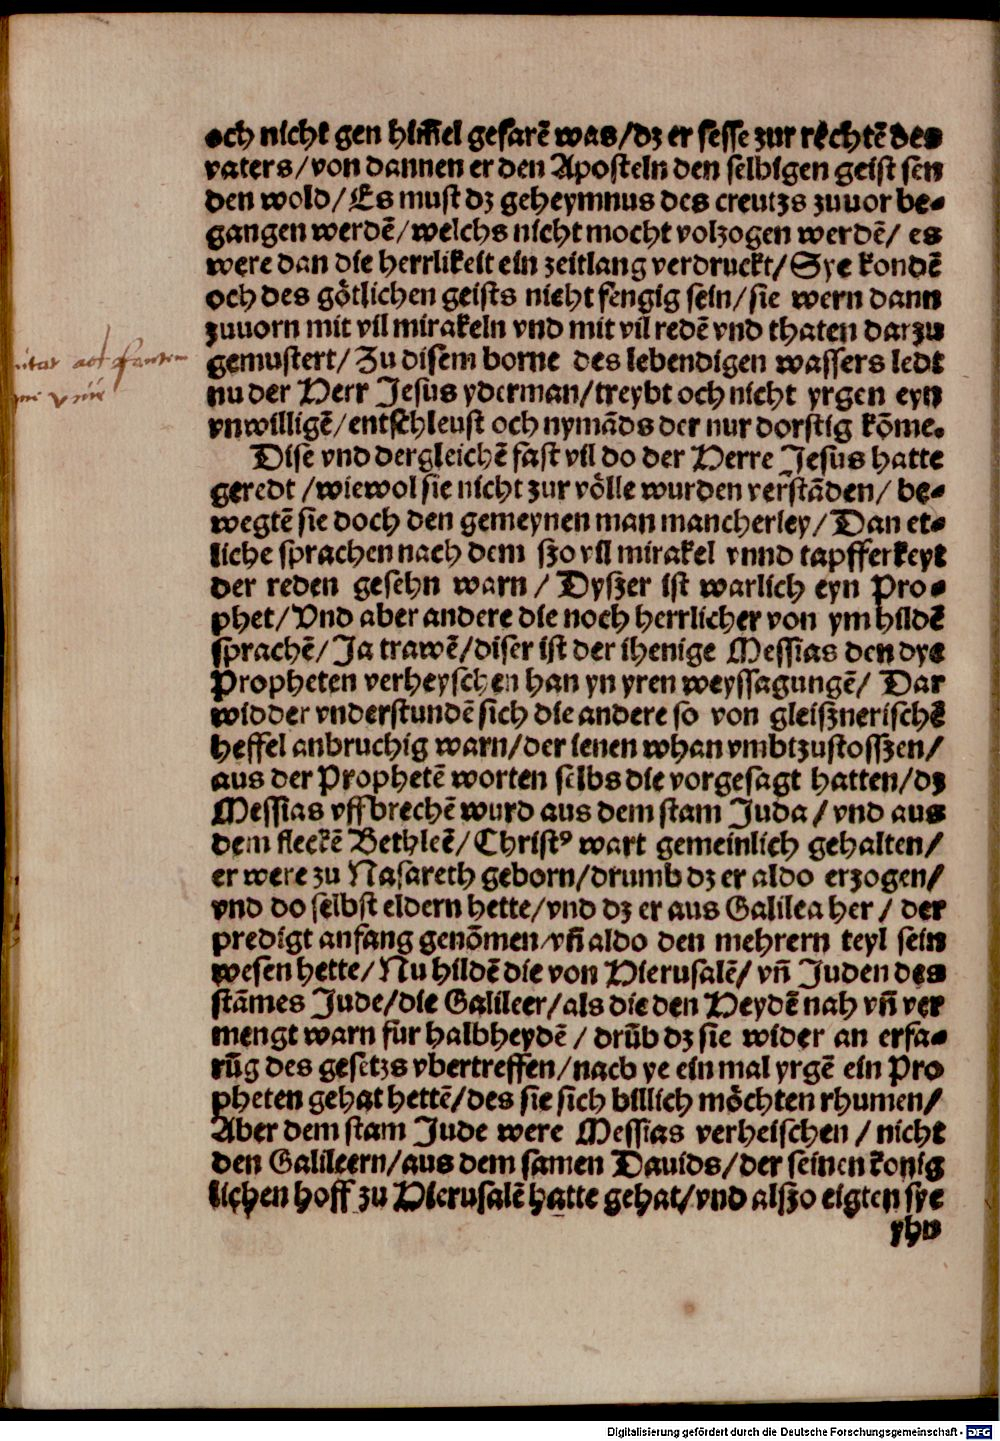 och nicht gen him̄el gefarē was/dz er sesse zur rechtē des
vaters/von dannen er den Aposteln den selbigen geist sen
den wold/Es must dz geheymnus des creutzs zuuor be⸗
gangen werdē/welchs nicht mocht volzogen werdē/ es
were dan die herrlikeit ein zeitlang verdruckt/Sye kondē
och des götlichen geists nicht fengig sein/sie wern dann
zuuorn mit vil mirakeln vnd mit vil redē vnd thaten darzu
gemustert/Zu disem borne des lebendigen wassers ledt
nu der Herr Jesus yderman/treybt och nicht yrgen eyn
vnwilligē/entschleust och nymāds der nur dorstig kōme.
Dise vnd dergleichē fast vil do der Herre Jesus hatte
geredt /wiewol sie nicht zur völle wurden verstāden/ be⸗
wegtē sie doch den gemeynen man mancherley/Dan et⸗
liche sprachen nach dem szo vil mirakel vnnd tapfferkeyt
der reden gesehn warn / Dyszer ist warlich eyn Pro⸗
phet/Vnd aber andere die noch herrlicher von ym hildē
sprachē/Ja trawē/diser ist der ihenige Messias den dye
Propheten verheyschen han yn yren weyssagungē/ Dar
widder vnderstundē sich die andere so von gleisznerischē
heffel anbruchig warn/der ienen whan vmbtzustosszen/
aus der Prophetē worten selbs die vorgesagt hatten/dz
Messias vffbrechē wurd aus dem stam Juda/vnd aus
dem fleckē Bethleē/Christꝰ wart gemeinlich gehalten/
er were zu Nasareth geborn/drumb dz er aldo erzogen/
vnd do selbst eldern hette/vnd dz er aus Galilea her/ der
predigt anfang genōmen/vn̄ aldo den mehrern teyl sein
wesen hette/Nu hildē die von Hierusalē/ vn̄ Juden des
stāmes Jude/die Galileer/als die den Heydē nah vn̄ ver
mengt warn für halbheydē / drūb dz sie wider an erfa⸗
rūg des gesetzs vbertreffen/nach ye ein mal yrgē ein Pro
pheten gehat hettē/des sie sich billich möchten rhumen/
Aber dem stam Jude were Messias verheischen / nicht
den Galileern/aus dem samen Dauids/der seinen konig
lichen hoff zu Hierusalē hatte gehat/vnd alszo eigten sye
yhn
Digitalisierung gefördert durch die Deutsche Forschungsgemeinschaft - DFG